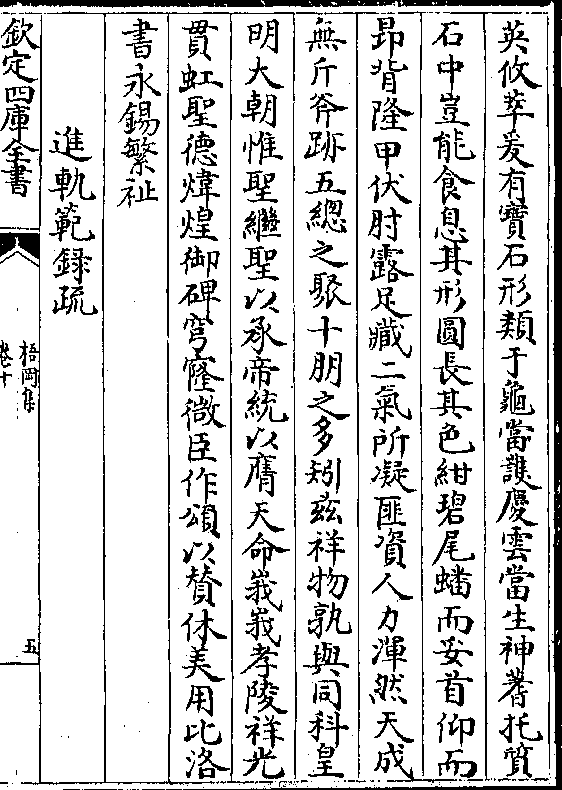 英攸萃爰有寶石形類于龜當護慶雲當生神蓍托質
石中豈能食息其形圓長其色紺碧尾蟠而妥首仰而
昂背隆甲伏肘露足藏二氣所凝匪資人力渾然天成
無斤斧跡五總之聚十朋之多矧兹祥物孰與同科皇
明大朝惟聖繼聖以承帝統以膺天命峩峩孝陵祥光
貫虹聖德煒煌御碑穹窿微臣作頌以賛休美用比洛
書永錫繁祉
進軌範録疏
欽定四庫全書
梧岡集
卷十
五